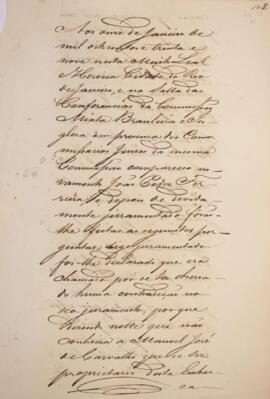 Aos onze de Janeiro de
mil oitocentos e trinta e
nove nesta Muito Leal
Heroica Cidade do Rio
de Janeiro, e na Salla das
Conferencias da Commissão
Mixta Brasileira e In
gleza em presença dos Com
missarios Juizes da mesma
Commissão compareceo no
vamente João Pedro Fer
reira e depois de devida
mente juramentado forão
lhe feitas as seguintes per
guntas
foi-lhe declarado que era
chamado por se ter observa
do huma contradição no
seo juramento, por que
dizendo nelle que não
conhecia a Manoel José
de Carvalho que se diz
proprietario desta Embar
ca